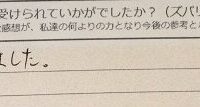 受けられていかがでしたか？（ズバリ
感想が、私達の何よりの力となり今後の参考と
ました。